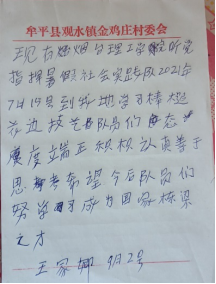 牟平县观水镇金鸡庄村委会
现有烟台理工学院听党
指挥暑假社会实践队2021年
7月15日到我地学习棒槌
花边技艺队员们态
度度端正积极认真善于
思考希望今后队员们
努学习成为国家栋梁
之才
王家 9月2号